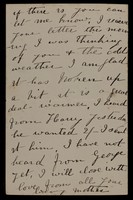 if there is you can
let me know, I received
your letter this morn
ing I was thinking
of you & the cold
weather. I am glad
it has
a bit it is a great
last summer, I heard
from Harry yesterday
be wanted if I sent
it him, I have not
heard from George
yet, I will close with
love from all, your
loving mother